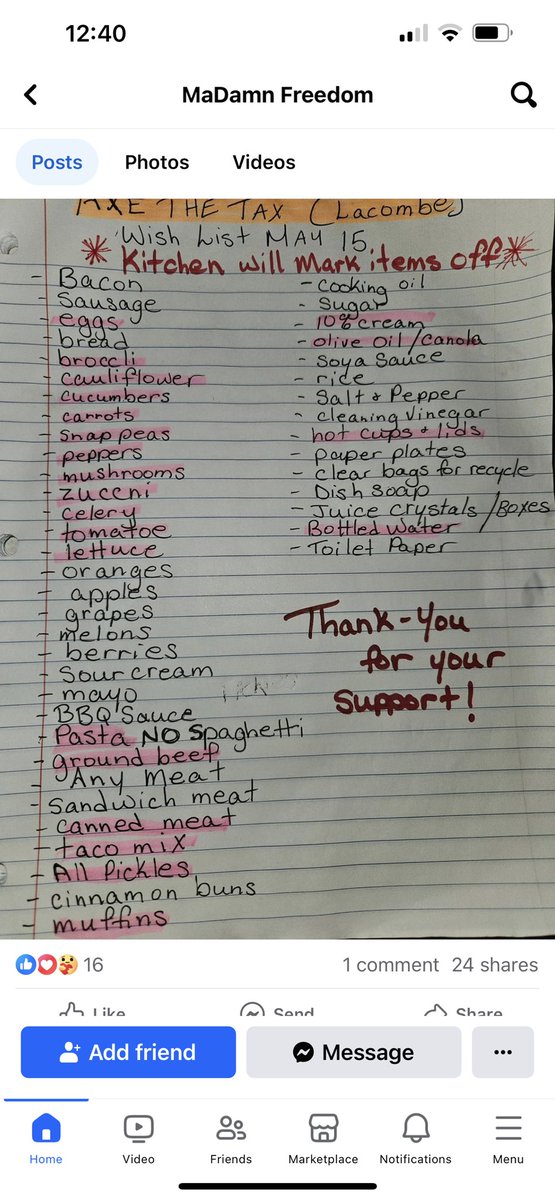 12:40
MaDamn Freedom
Posts
Photos
Videos
AXE THE TAX (Lacombe)
Wish List MAY 15
* Kitchen will Mark items off *
- Bacon
- Sausage
- eggs
- bread
- broccli
- cauliflower
- cucumbers
- carrots
- snap peas
- peppers
- mushrooms
- zuccni
- celery
- tomatoe
- lettuce
- oranges
- apples
- grapes
- melons
- berries
- Sour cream
- mayo
- BBQ Sauce
- Pasta NO Spaghetti
- ground beef
- Any meat
- Sandwich meat
- canned meat
- taco mix
- All Pickles
- cinnamon buns
- muffins
- cooking oil
- Sugar
- 10% cream
- olive oil/canola
- Soya Sauce
- rice
- Salt & Pepper
- cleaning Vinegar
- hot cups & lids
- paper plates
- clear bags for recycle
- Dish soap
- Juice crystals/Boxes
- Bottled water
- Toilet Paper
Thank-You
for your
Support!
16
1 comment 24 shares
Like
Send
Share
Add friend
Message
Home
Video
Friends
Marketplace
Notifications
Menu